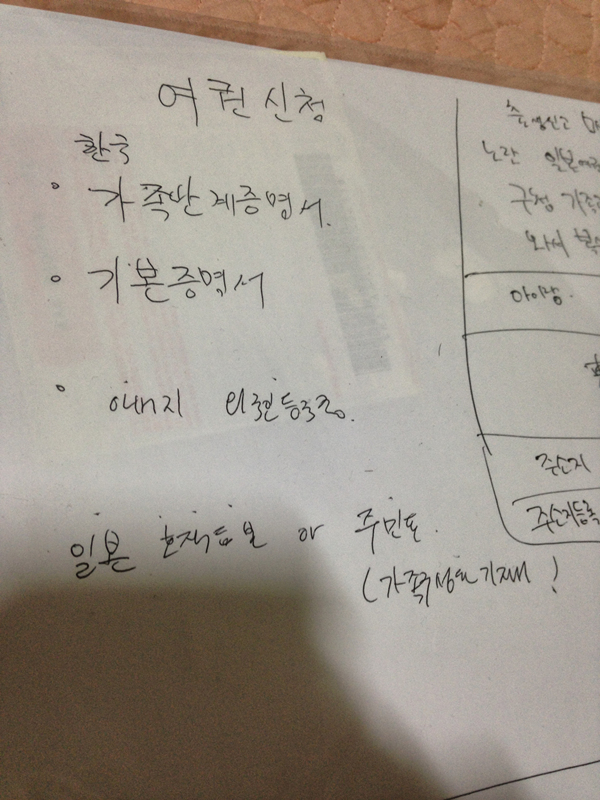 여권 신청
한국
가족관계증명서.
기본증명서
아버지 외국인등록증.
일본 호적등본 or 주민표.
(가족성명기재!
출생신고
노란 일본여권
구청 가족
와서
아이랑.
주소지
주소지등록